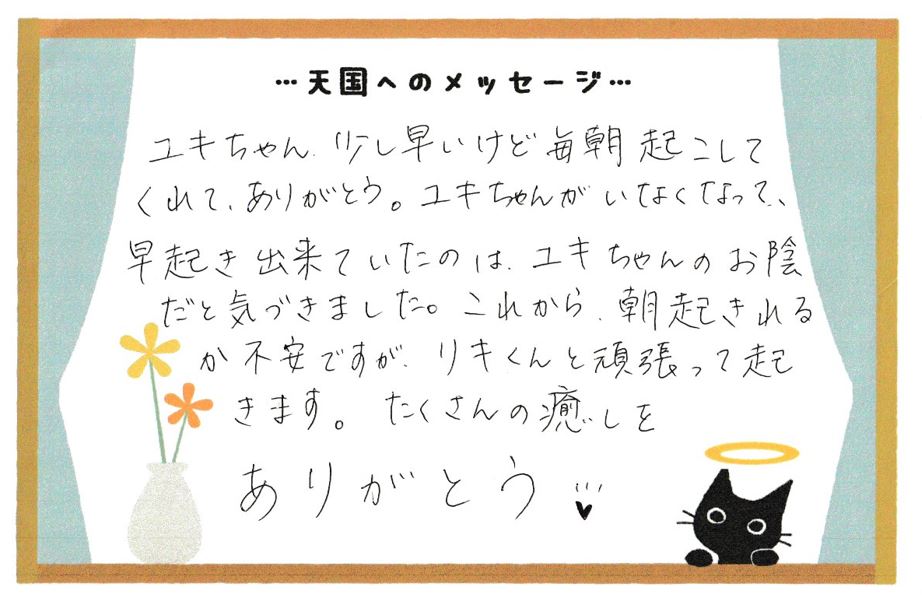 …天国へのメッセージ…
ユキちゃん、少し早いけど毎朝起こして
くれて、ありがとう。ユキちゃんがいなくなって、
早起き出来ていたのは、ユキちゃんのお陰
だと気づきました。これから、朝起きれる
か不安ですが、リキくんと頑張って起
きます。たくさんの癒しを
ありがとう